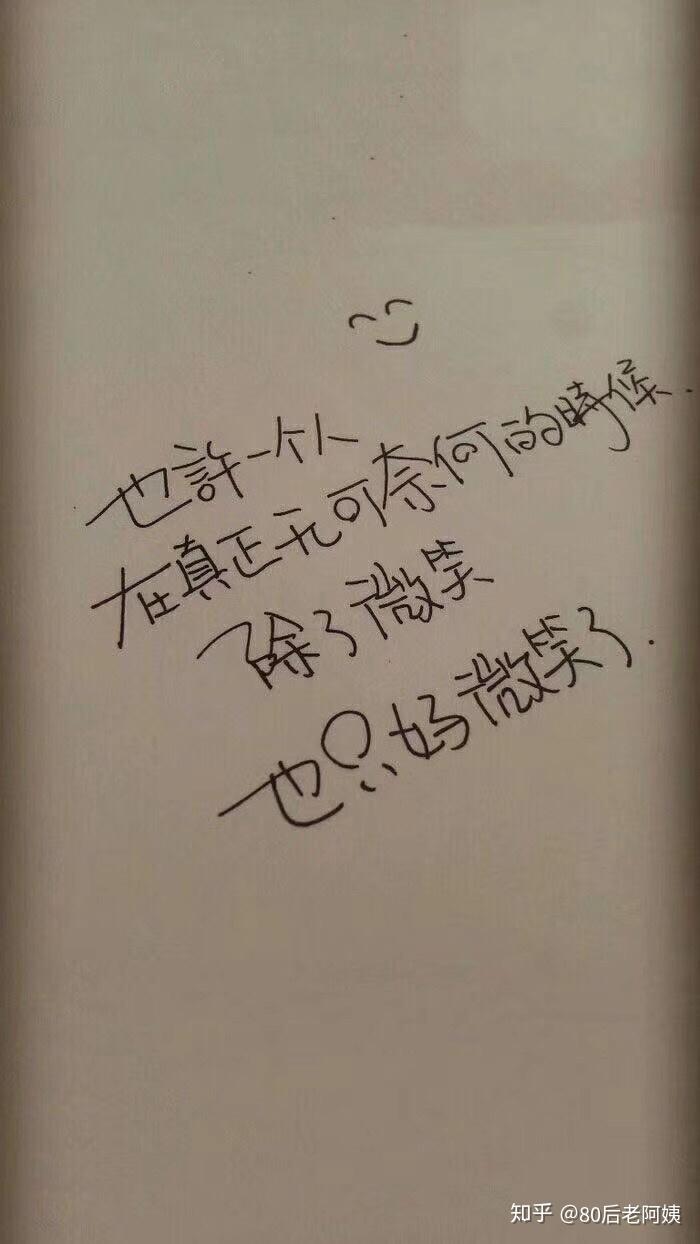 也許一个人
在真正无可奈何的時候.
除了微笑
也只好微笑了.
知乎 @80后老阿姨